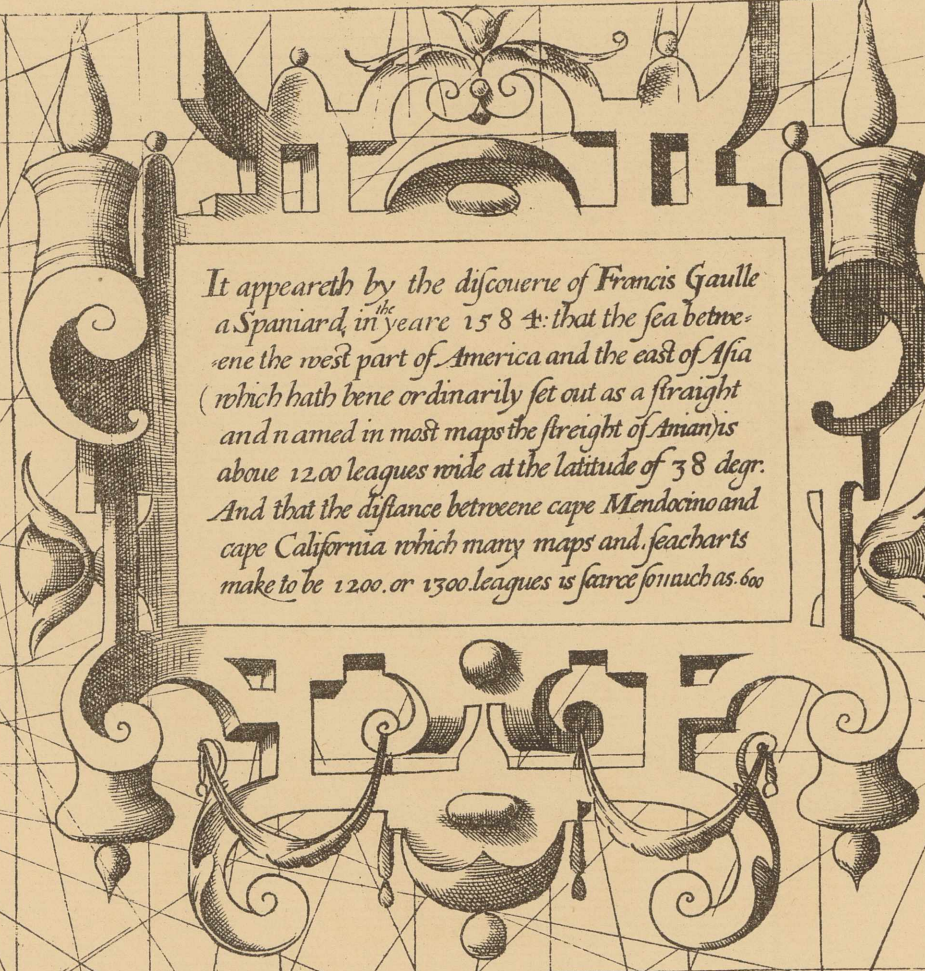 It appeareth by the diſcouerie of Francis Gaulle
a Spaniard, in the yeare 1584: that the ſea betwe-
-ene the west part of America and the east of Aſia
(which hath bene ordinarily ſet out as a ſtraight
and named in most maps the ſtreight of Anian) is
aboue 1200 leagues wide at the latitude of 38 degr.
And that the diſtance betweene cape Mendocino and
cape California which many maps and ſeacharts
make to be 1200. or 1300. leagues is ſcarce ſo much as. 600